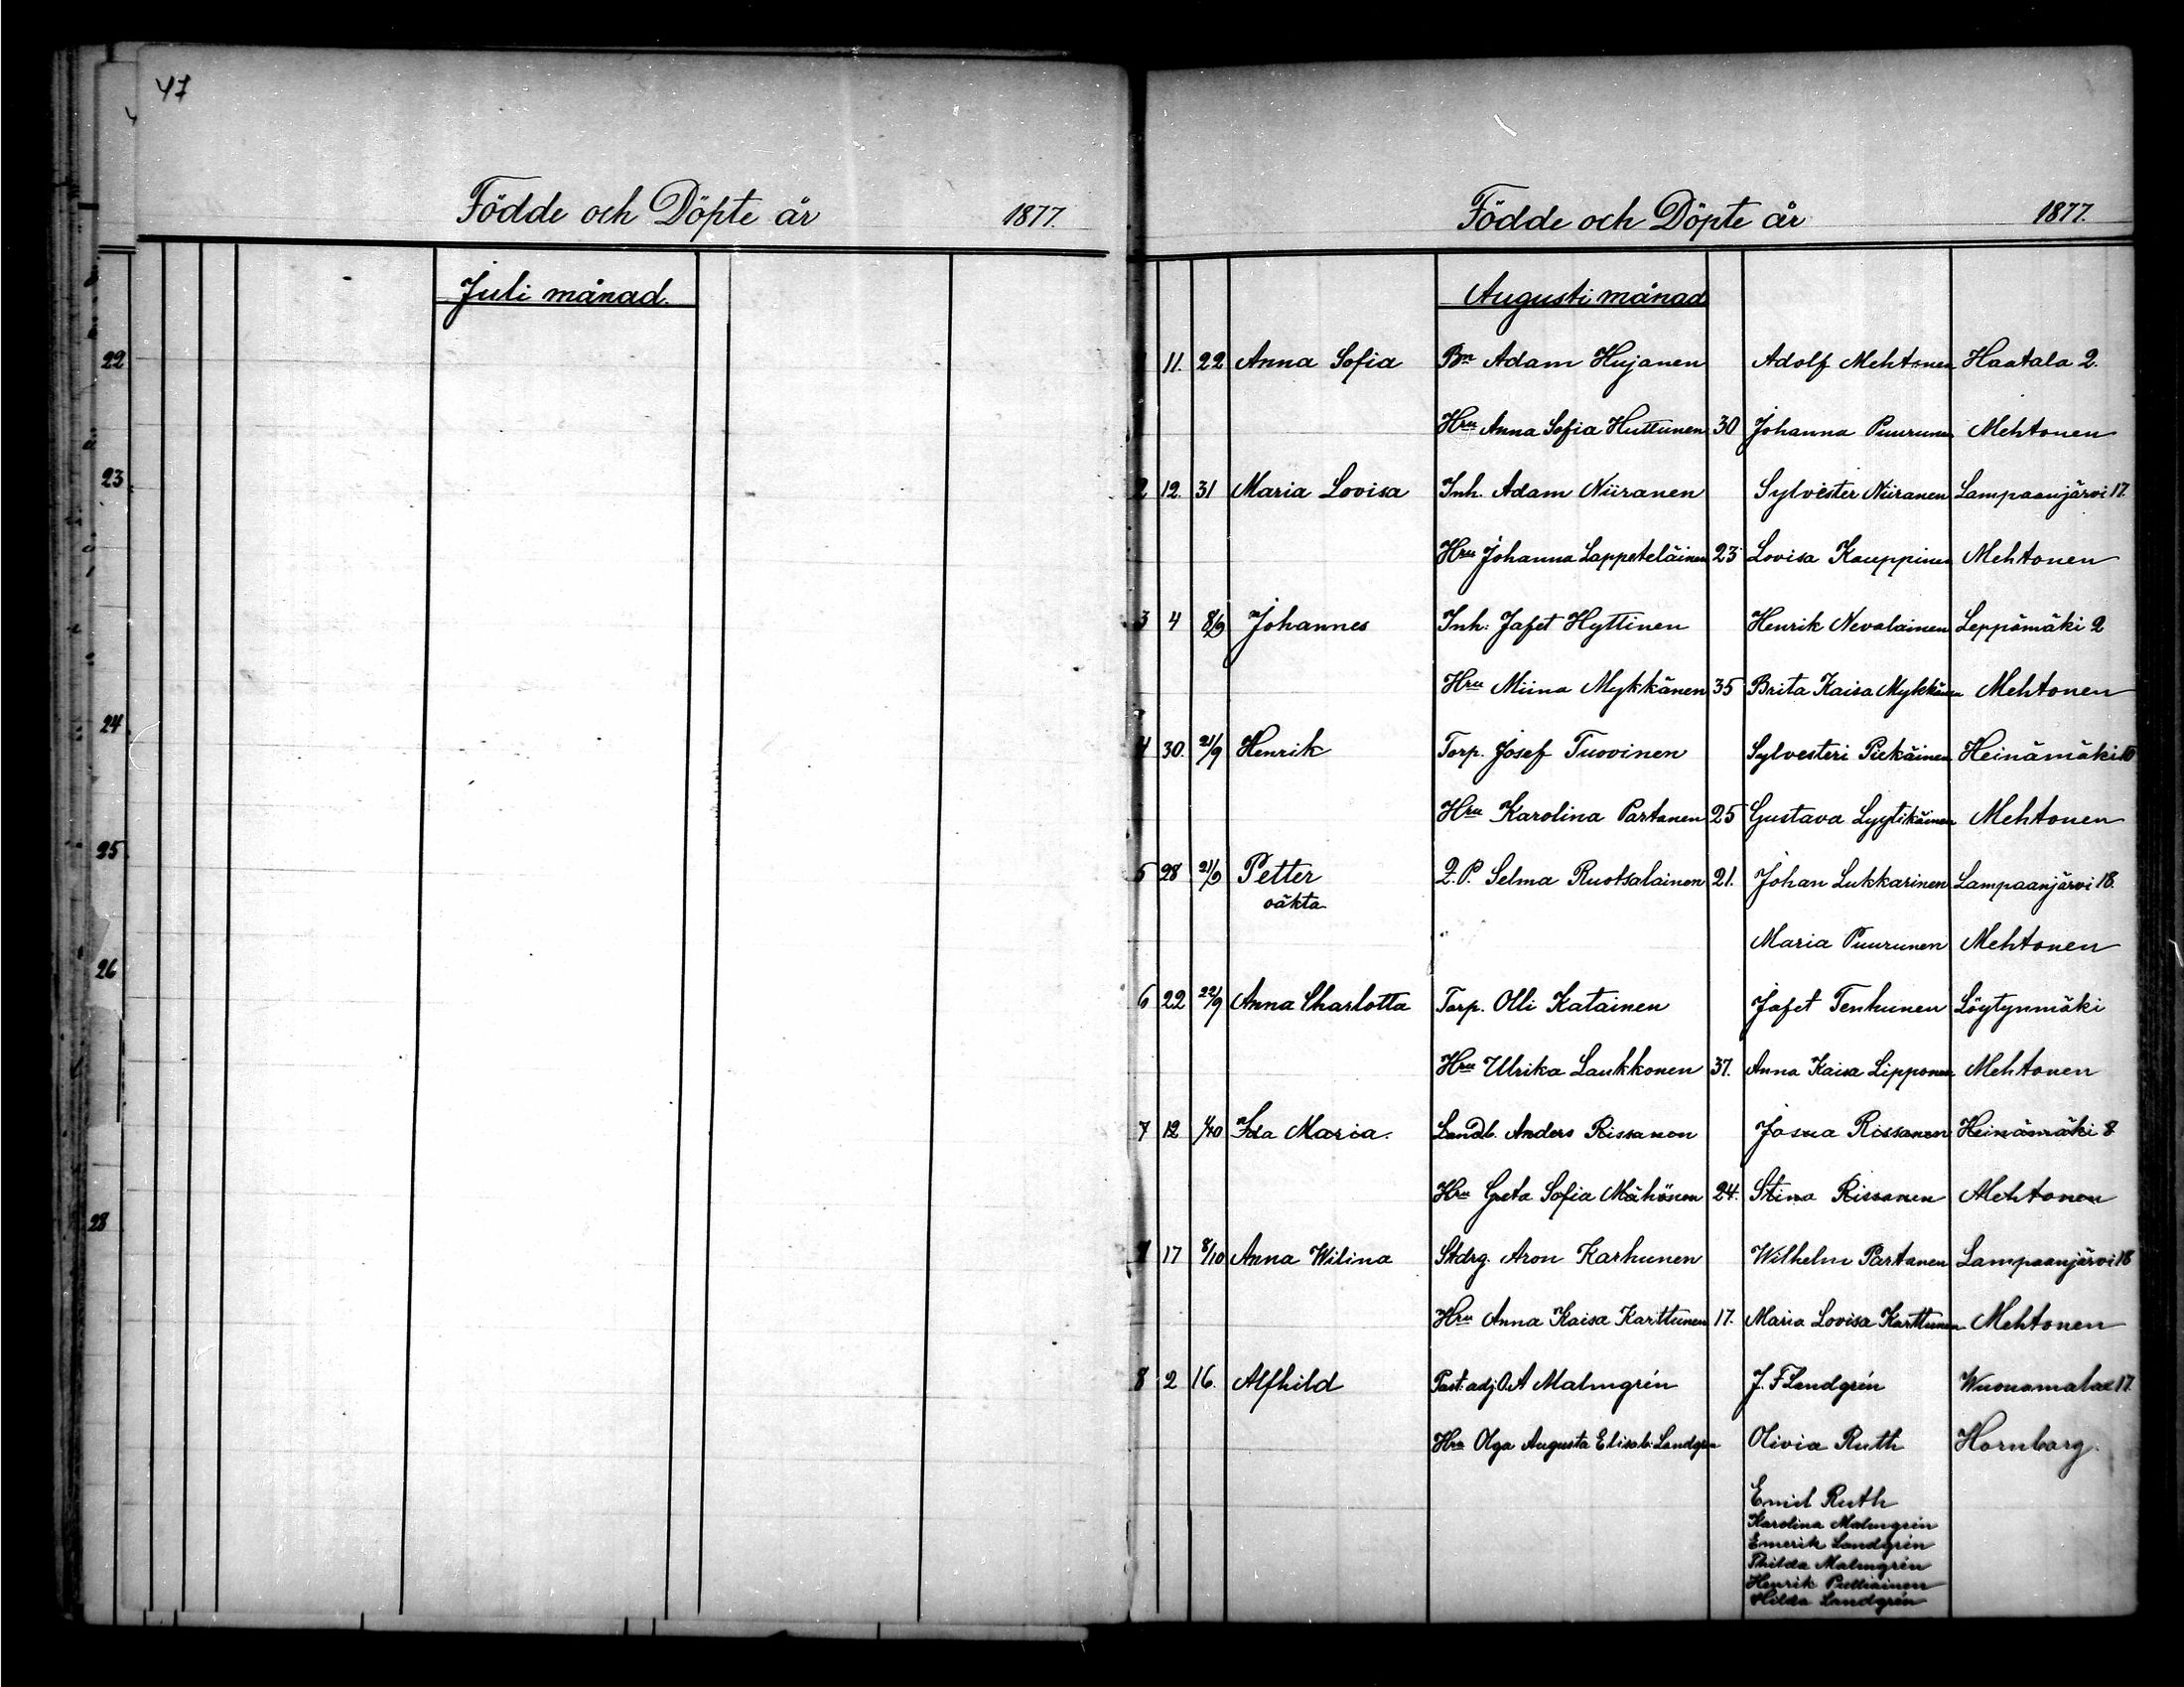 47
Födde och Döpte år 1877.
Juli månad.
22
23
24
25
26
28
Födde och Döpte år 1877.
Augusti månad
11. 22 Anna Sofia Bn Adam Hujanen Adolf Mehtonen Haatala 2.
Hru Anna Sofia Huttunen 30 Johanna Puurunen Mehtonen
2 12. 31 Maria Lovisa Inh. Adam Niiranen Sylvester Niiranen Lampaanjärvi 17.
Hru Johanna Lappeteläinen 23 Lovisa Kauppinen Mehtonen
3 4 8/9 Johannes Inh. Jafet Hyttinen Henrik Nevalainen Leppämäki 2
Hru Miina Mykkänen 35 Brita Kaisa Mykkänen Mehtonen
4 30. 21/9 Henrik Torp. Josef Tuovinen Sylvesteri Piekäinen Heinämäki 10
Hru Karolina Partanen 25 Gustava Lyytikäinen Mehtonen
5 28 21/9 Petter Q.P. Selma Ruotsalainen 21. Johan Lukkarinen Lampaanjärvi 18.
oäkta
Maria Puurunen Mehtonen
6 22 22/9 Anna Charlotta Torp. Olli Katainen Jafet Tenhunen Löytynmäki
Hru Ulrika Laukkonen 37. Anna Kaisa Lipponen Mehtonen
7 12 1/10 Ida Maria. Landb. Anders Rissanen Josua Rissanen Heinämäki 8
Hru Greta Sofia Mähönen 24. Stina Rissanen Mehtonen
17 8/10 Anna Wilina Stdrg. Aron Karhunen Wilhelm Partanen Lampaanjärvi 18
Hru Anna Kaisa Karttunen 17. Maria Lovisa Karttunen Mehtonen
8 2 16. Alfhild Past. adj. O.A Malmgrén J. F Landgrén Wuonamalax 17.
Hru Olga Augusta Elisab. Landgren Olivia Ruth Hornborg.
Emil Ruth
Karolina Malmgrén
Emerik Landgrén
Thilda Malmgrén
Henrik Pulliainen
Hilda Landgrén